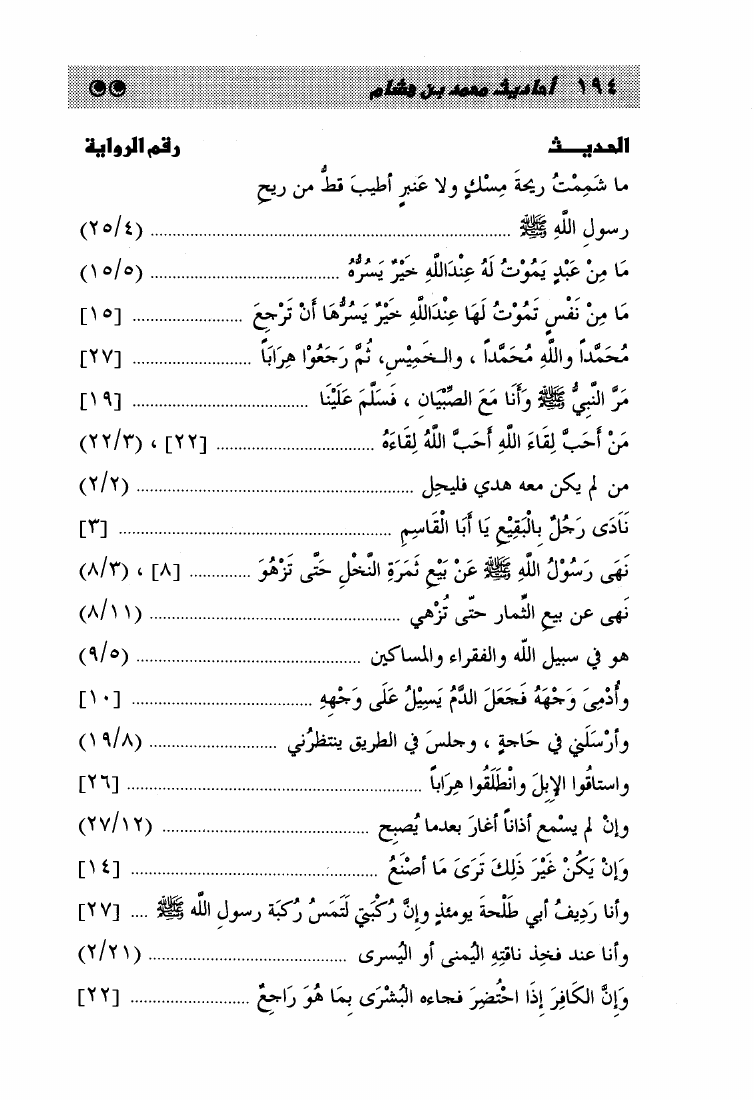 ١٩٤ أحاديث محمد بن هشام
الحديــــث رقم الرواية
ما شَمِمْتُ ريحةَ مِسْكٍ ولا عَنبرٍ أطيبَ قطُّ من ريحِ
رسول اللَّهِ ﷺ ........................................ (٢٥/٤)
مَا مِنْ عَبْدٍ يَمُوْتُ لَهُ عِنْدَاللَّهِ خَيْرٌ يَسُرُّهُ ........................ (١٥/٥)
مَا مِنْ نَفْسٍ تَمُوْتُ لَهَا عِنْدَاللَّهِ خَيْرٌ يَسُرُّهَا أَنْ تَرْجِعَ ............... [١٥]
مُحَمَّداً واللَّهِ مُحَمَّداً ، والـخَمِيْس، ثُمَّ رَجَعُوْا هِرَاباً ............... [٢٧]
مَرَّ النَّبِيُّ ﷺ وَأَنَا مَعَ الصِّبْيَانِ ، فَسَلَّمَ عَلَيْنَا ........................ [١٩]
مَنْ أَحَبَّ لِقَاءَ اللَّهِ أَحَبَّ اللَّهُ لِقَاءَهُ .................... [٢٢] ، (٢٢/٣)
من لم يكن معه هدي فليحل ........................................ (٢/٢)
نَادَى رَجُلٌ بِالْبَقِيْعِ يَا أَبَا الْقَاسِمِ ................................ [٣]
نَهَى رَسُوْلُ اللَّهِ ﷺ عَنْ بَيْعِ ثَمَرَةِ النَّخْلِ حَتَّى تَزْهُوَ ............. [٨] ، (٨/٣)
نَهى عن بيعِ الثِّمار حتّى تُزْهي .................................... (٨/١١)
هو في سبيل اللَّه والفقراء والمساكين ................................ (٩/٥)
وأُدْمِيَ وَجْهَهُ فَجَعَلَ الدَّمُ يَسِيْلُ عَلَى وَجْهِهِ ........................ [١٠]
وأرْسَلَني في حَاجةٍ ، وجلسَ في الطريق ينتظرُني .................. (١٩/٨)
واستاقُوا الإبِلَ وانْطَلَقُوا هِرَاباً ........................................ [٢٦]
وإنْ لم يسْمع أذاناً أغارَ بعدما يُصبح ............................ (٢٧/١٢)
وَإنْ يَكُنْ غَيْرَ ذَلِكَ تَرَىَ مَا أَصْنَعُ ................................ [١٤]
وأنا رَدِيفُ أبي طَلْحةَ يومئذٍ وإنَّ رُكْبَتِي لَتَمَسُ رُكبَة رسولِ اللَّهِ ﷺ .... [٢٧]
وأنا عند فخِذ ناقتِهِ اليُمنى أو اليُسرى ............................ (٢/٢١)
وَإنَّ الكَافِرَ إذَا احْتُضِرَ فجاءه البُشْرَى بِمَا هُوَ رَاجِعٌ ............... [٢٢]